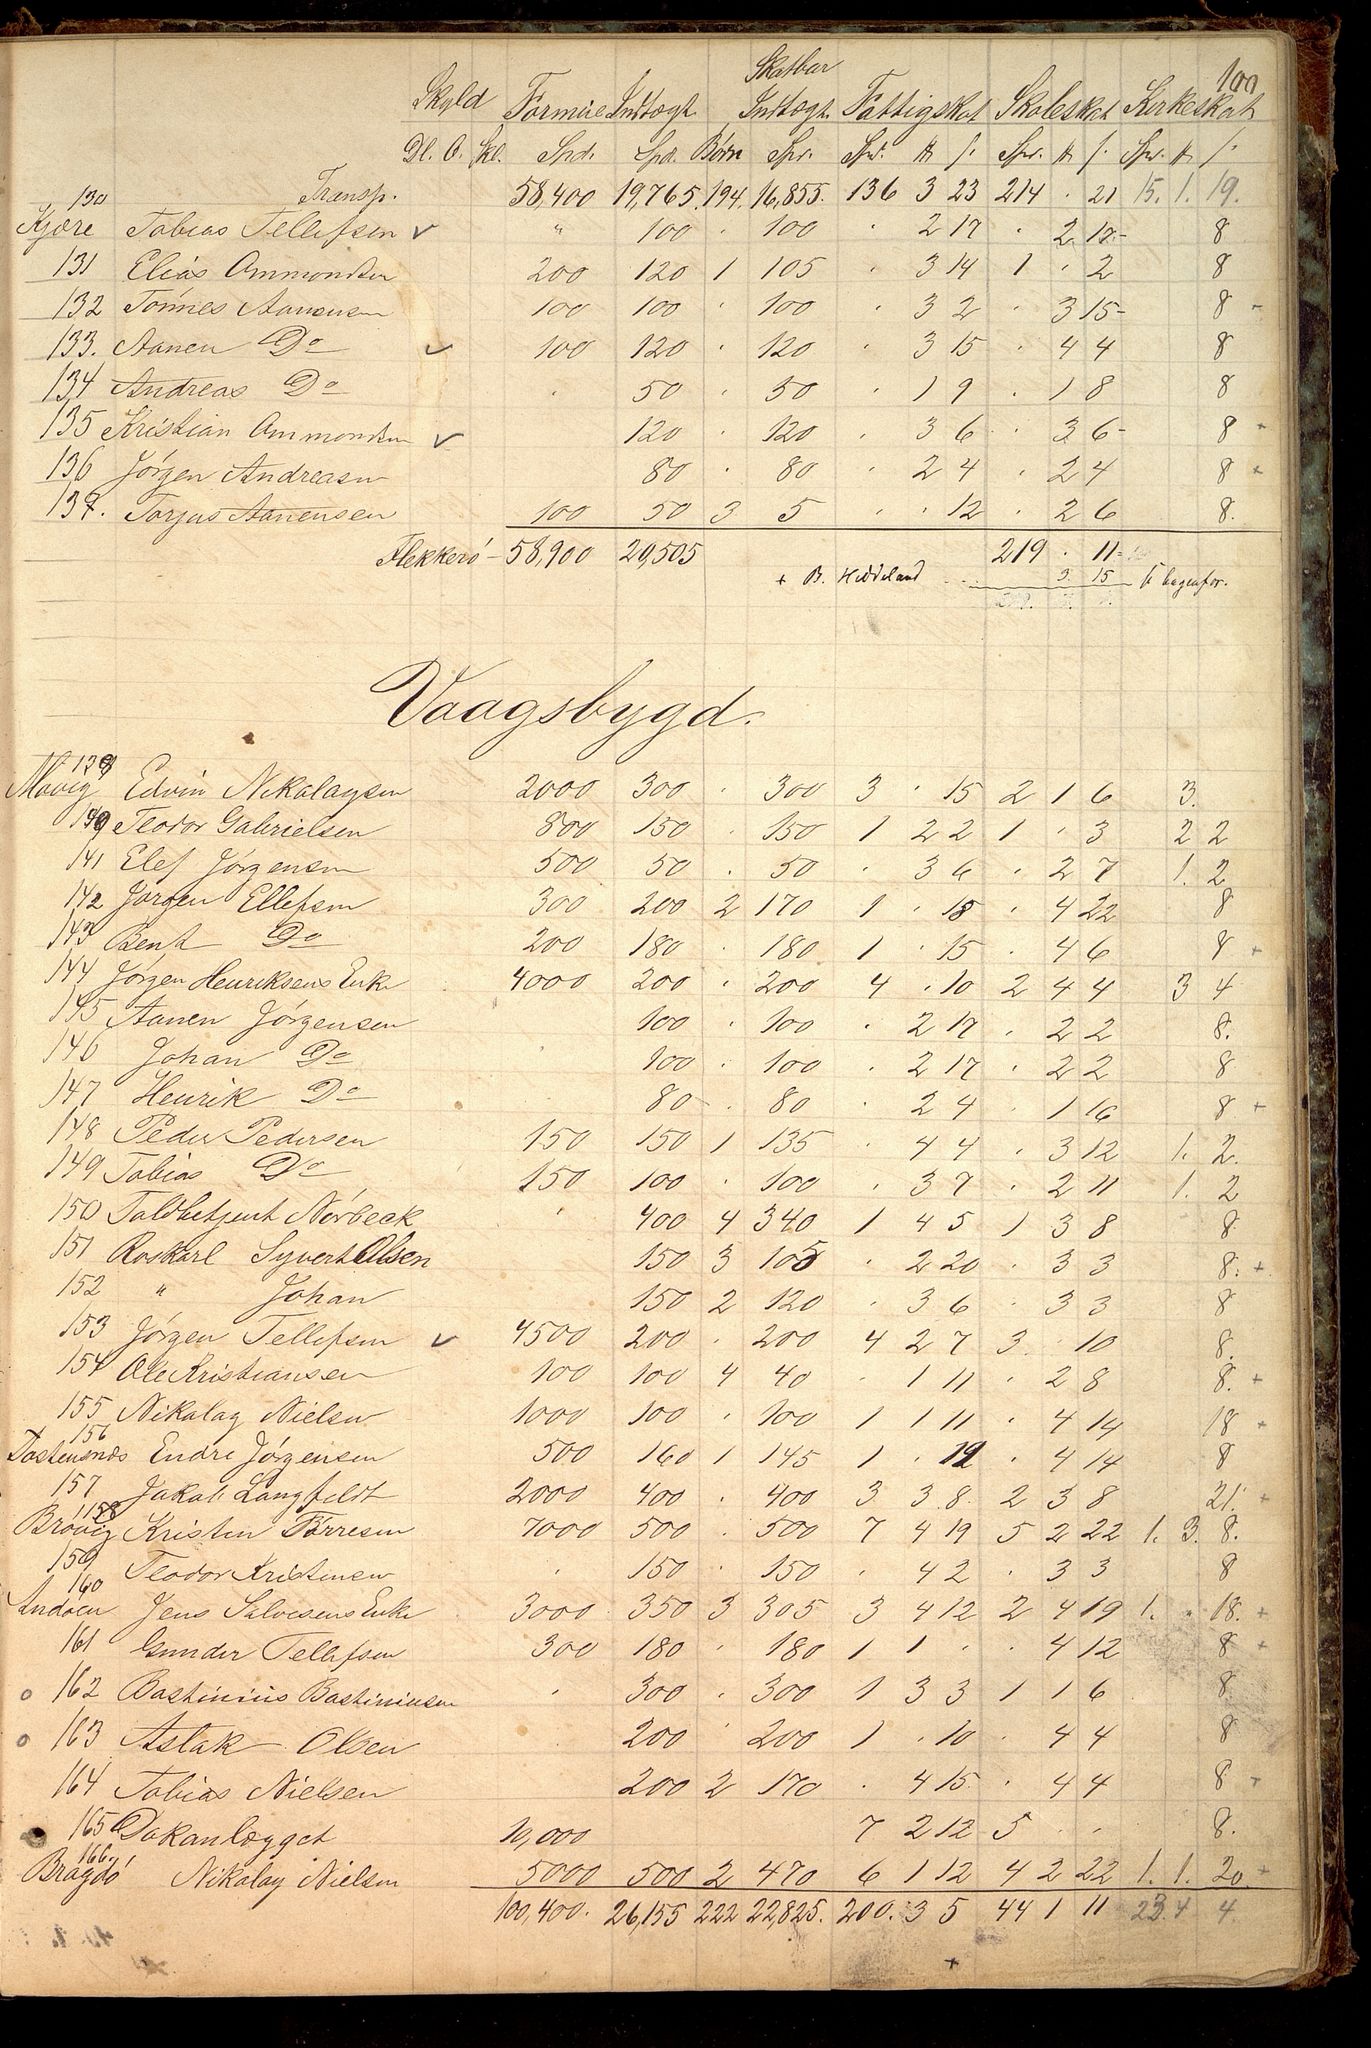 100
Skatbar
Skyld Formue Indtægt Indtægt Fattigskat Skoleskat Kirkeskat
Dl. O. Skl. Spd. Spd. Børn Spr. Spr. # /. Spr. # /. Spr. # /.
Transp. 58,400 19,765. 194. 16,855. 136 3 23 214 . 21 15. 1. 19.
130
Kjære Tobias Tellefsen ✓ " 100 . 100 . 2 17 . 2 17- 8
131 Elias Ammondsen 200 120 1 105 . 3 14 1 . 2 8
132 Tønnes Aanensen 100 100 . 100 . 3 2 . 3 15- 8 -
133. Aanen Do ✓ 100 120 . 120 . 3 15 . 4 4 8
134 Andreas Do . 50 . 50 . 1 9 . 1 8 8
135 Kristian Ammondsen ✓ 120 . 120 . 3 6 . 3 6- 8 +
136 Jørgen Andreasen 80 . 80 . 2 4 . 2 4 8 +
137. Torjus Aanensen 100 50 3 5 . . 12 . 2 6 8.
Flekkerö - 58,900 20,505 219 . 11-
+ B. Hiddeland 3. 15 bagenfor.
Vaagsbygd.
139
Movig Edvin Nikolaysen 2000 300 . 300 3 . 15 2 1 6 3.
140 Teodor Gabrielsen 800 150 . 150 1 2 2 1 . 3 2 2
141 Elef Jørgensen 500 50 . 50 . 3 6 . 2 7 1. 2
142 Jørgen Ellefsen 300 200 2 170 1 . 18 . 4 22 8
143 Bent Do 200 180 . 180 1 . 15 . 4 6 8 +
144 Jørgen Henriksens Enke 4000 200 . 200 4 . 10 2 4 4 3 4
145 Aanen Jørgensen 100 . 100 . 2 17 . 2 2 8.
146 Johan Do 100 . 100 . 2 17 . 2 2 8
147 Henrik Do 80 . 80 . 2 4 . 1 16 8 +
148 Peder Pedersen 150 150 1 135 . 4 4 . 3 12 1. 2.
149 Tobias Do 150 100 . 100 . 3 7 . 2 11 1. 2
150 Toldbetjent Nørbeck . 400 4 340 1 4 5 1 3 8 8
151 Roskarl Syvert Olsen 150 3 105 . 2 20 . 3 3 8. +
152 " Johan 150 2 120 . 3 6 . 3 3 8
153 Jørgen Tellefsen ✓ 4500 200 . 200 4 2 7 3. . 10 8.
154 Ole Kristiansen 100 100 4 40 . 1 11 . 2 8 8. +
155 Nikolay Nielsen 1000 100 . 100 1 1 11 . 4 14 18 +
156
Tostensnæs Endre Jørgensen 500 160 1 145 1 . 12 . 4 14 8
157 Jakob Langfeldt 2000 400 . 400 3 3 8. 2 3 8 21. +
158
Brøvig Kristen Tørresen 7000 500 . 500 7 4 19 5 2 22 1. 3. 8.
159 Teodor Kristensen . 150 . 150 . 4 2 . 3 3 8
160
Andøen Jens Salvesens Enke 3000 350 3 305 3 4 12 2 4 19 1. . 18. +
161 Gunder Tellefsen 300 180 . 180 1 1 . . 4 12 8 +
o 162 Bastinius Bastiniusen . 300 . 300 1 3 3 1 1 6 8
o 163 Aslak Olsen 200 . 200 1 . 10 . 4 4 8
164 Tobias Nielsen 200 2 170 . 4 15 . 4 4 8 +
165 Dokanlægget 10,000 7 2 12 5 . . 8.
166.
Bragdö Nikolay Nielsen 5000 500 2 470 6 1 12 4 2 22 1. 1. 20. +
100,400. 26,155 222 22,825. 200. 3 5 44 1 11 23. 4 4
+